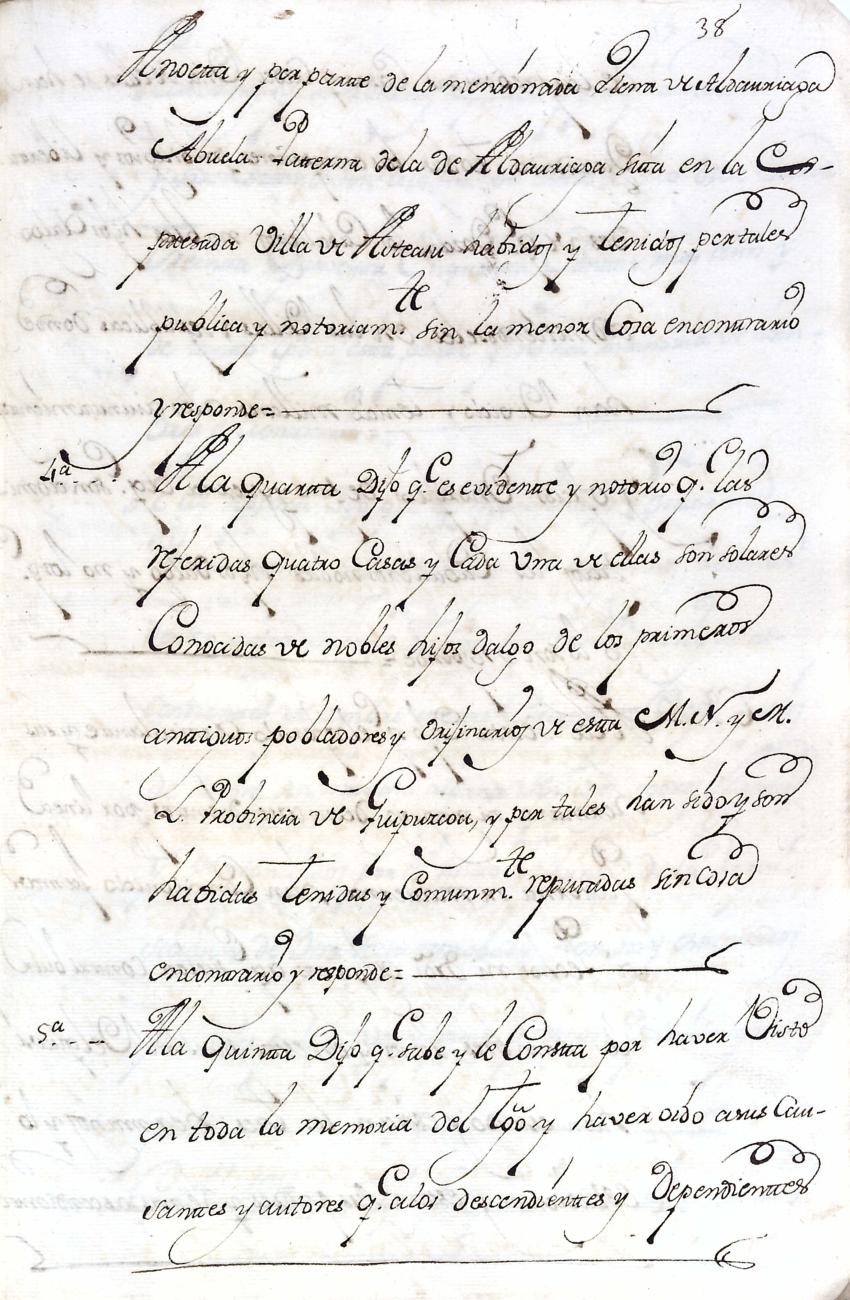 38
Anoetta y por partte de la mencionada Elena de Aldauriaga
Abuela Patterna de la de Aldauriaga sitta en la Ex-
presada Villa de Asteasu habidos y Tenidos por tales
publica y notoriam.te sin la menor Cosa encontrario
y responde=
4.a A la quartta Dijo q.e es evidentte y notorio q.e las
referidas quatro Casas y Cada Una de ellas son solares
Conocidas de nobles hijos dalgo de los primeros
anttiguos pobladores y orijinarios de esta M. N. y M.
L. Probincia de Guipuzcoa, y por tales han sido y son
habidas Tenidas y Comunm.te reputadas sin Cosa
encontrario y responde=
5.a A la quintta Dijo q.e sabe y le Constta por haver Visto
en toda la memoria del tgõ y haver oido a sus Cau-
santtes y autores q.e a los descendienttes y Dependienttes